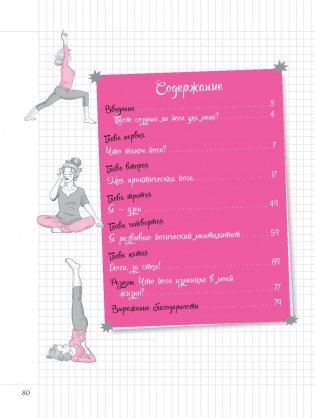 Содержание
Введение 3
Тест: создана ли йога для меня? 4
Глава первая
Что такое йога? 7
Глава вторая
Моя практическая йога 17
Глава третья
Я – дзен 49
Глава четвертая
Я развиваю йогический менталитет 59
Глава пятая
Йоги, за стол! 69
Резюме Что йога изменила в моей
жизни? 77
Выражение благодарности 79
80